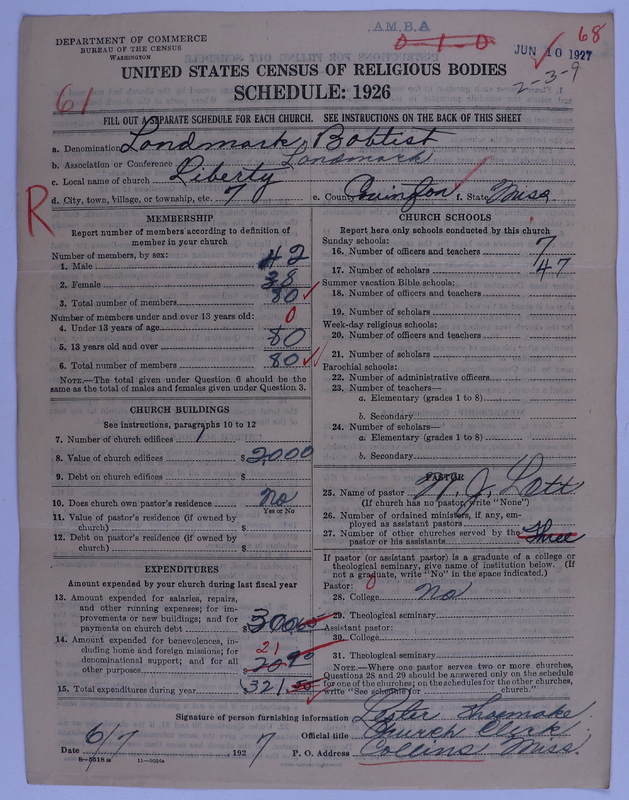 A.M.B.A
0-1-0
68
JUN 10 1927
2-3-9
61
R
DEPARTMENT OF COMMERCE
BUREAU OF THE CENSUS
WASHINGTON
UNITED STATES CENSUS OF RELIGIOUS BODIES
SCHEDULE: 1926
FILL OUT A SEPARATE SCHEDULE FOR EACH CHURCH. SEE INSTRUCTIONS ON THE BACK OF THIS SHEET
a. Denomination Landmark Babtist
b. Association or Conference Landmark
c. Local name of church Liberty
d. City, town, village, or township, etc. 7 e. County Covington f. State Miss
MEMBERSHIP
Report number of members according to definition of
member in your church
Number of members, by sex:
1. Male 42
2. Female 38
3. Total number of members 80
Number of members under and over 13 years old:
4. Under 13 years of age 0
5. 13 years old and over 80
6. Total number of members 80
NOTE.—The total given under Question 6 should be the
same as the total of males and females given under Question 3.
CHURCH BUILDINGS
See instructions, paragraphs 10 to 12
7. Number of church edifices 1
8. Value of church edifices $2000
9. Debt on church edifices $
10. Does church own pastor's residence? No
Yes or No
11. Value of pastor's residence (if owned by
church) $
12. Debt on pastor's residence (if owned by
church) $
EXPENDITURES
Amount expended by your church during last fiscal year
13. Amount expended for salaries, repairs,
and other running expenses; for im-
provements or new buildings; and for
payments on church debt $300.60
14. Amount expended for benevolences, in-
cluding home and foreign missions; for
denominational support; and for all
other purposes 21 20.90
15. Total expenditures during year $321.50
CHURCH SCHOOLS
Report here only schools conducted by this church
Sunday schools:
16. Number of officers and teachers 7
17. Number of scholars 47
Summer vacation Bible schools:
18. Number of officers and teachers
19. Number of scholars
Week-day religious schools:
20. Number of officers and teachers
21. Number of scholars
Parochial schools:
22. Number of administrative officers
23. Number of teachers—
a. Elementary (grades 1 to 8)
b. Secondary
24. Number of scholars—
a. Elementary (grades 1 to 8)
b. Secondary
PASTOR
25. Name of pastor W. J. Lott
(If church has no pastor, write "None")
26. Number of ordained ministers, if any, em-
ployed as assistant pastors
27. Number of other churches served by the
pastor or his assistants Three
If pastor (or assistant pastor) is a graduate of a college or
theological seminary, give name of institution below. (If
not a graduate, write "No" in the space indicated.)
Pastor: 0
28. College No
29. Theological seminary
Assistant pastor:
30. College
31. Theological seminary
NOTE.—Where one pastor serves two or more churches,
Questions 28 and 29 should be answered only on the schedule
for one of the churches; on the schedules for the other churches,
write "See schedule for church."
Signature of person furnishing information Lester Shoemake
Official title Church Clerk
Date 6/7, 1927 P. O. Address Collins Miss.
8-5518 a 11-9054a